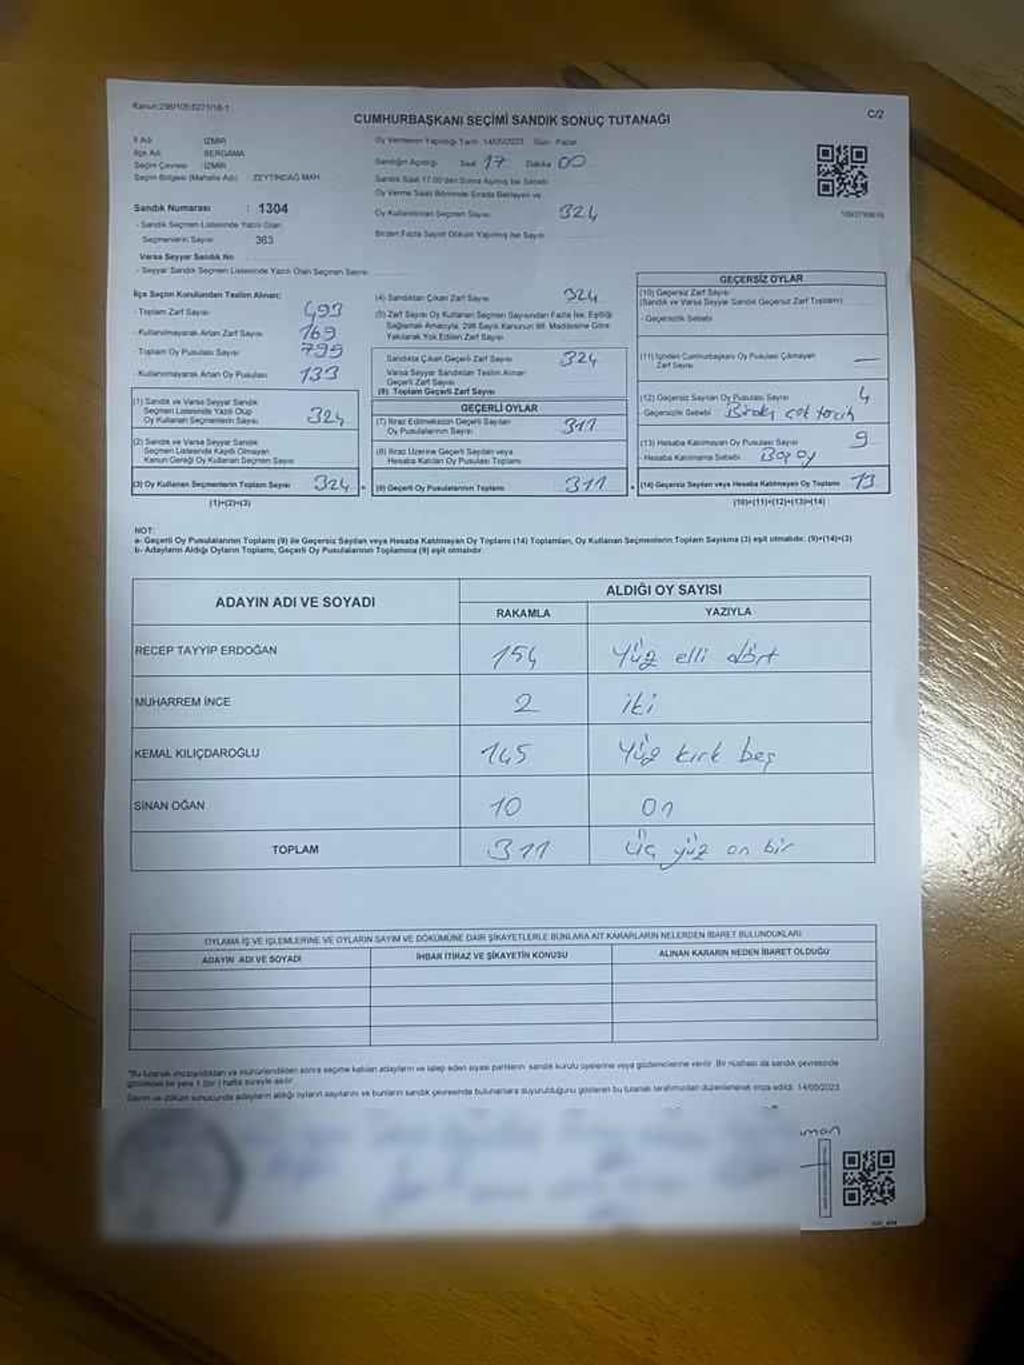 Kanun:298/105;6271/18-1
C/2
CUMHURBAŞKANI SEÇİMİ SANDIK SONUÇ TUTANAĞI
İl Adı : İZMİR
İlçe Adı : BERGAMA
Seçim Çevresi : İZMİR
Seçim Bölgesi (Mahalle Adı) : ZEYTİNDAĞ MAH.
Sandık Numarası : 1304
- Sandık Seçmen Listesinde Yazılı Olan
Seçmenlerin Sayısı 363
Varsa Seyyar Sandık No
- Seyyar Sandık Seçmen Listesinde Yazılı Olan Seçmen Sayısı
Oy Vermenin Yapıldığı Tarih: 14/05/2023 Gün: Pazar
Sandığın Açıldığı Saat 17 Dakika 00
Sandık Saat 17.00'den Sonra Açılmış İse Sebebi
Oy Verme Saati Bitiminde Sırada Bekleyen ve
Oy Kullandırılan Seçmen Sayısı 324
Birden Fazla Sayım Döküm Yapılmış İse Sayısı
İlçe Seçim Kurulundan Teslim Alınan:
- Toplam Zarf Sayısı 493
- Kullanılmayarak Artan Zarf Sayısı 169
Toplam Oy Pusulası Sayısı 799
- Kullanılmayarak Artan Oy Pusulası 133
(1) Sandık ve Varsa Seyyar Sandık
Seçmen Listesinde Yazılı Olup
Oy Kullanan Seçmenlerin Sayısı 324
(2) Sandık ve Varsa Seyyar Sandık
Seçmen Listesinde Kayıtlı Olmayan
Kanun Gereği Oy Kullanan Seçmen Sayısı
(3) Oy Kullanan Seçmenlerin Toplam Sayısı 324
(1)+(2)=(3)
(4) Sandıktan Çıkan Zarf Sayısı 324
(5) Zarf Sayısı Oy Kullanan Seçmen Sayısından Fazla İse, Eşitliği
Sağlamak Amacıyla, 298 Sayılı Kanunun 98. Maddesine Göre
Yakılarak Yok Edilen Zarf Sayısı
Sandıkta Çıkan Geçerli Zarf Sayısı 324
Varsa Seyyar Sandıktan Teslim Alınan
Geçerli Zarf Sayısı
(6) Toplam Geçerli Zarf Sayısı
GEÇERLİ OYLAR
(7) İtiraz Edilmeksizin Geçerli Sayılan
Oy Pusulalarının Sayısı 311
(8) İtiraz Üzerine Geçerli Sayılan veya
Hesaba Katılan Oy Pusulası Toplamı
(9) Geçerli Oy Pusulalarının Toplamı 311
GEÇERSİZ OYLAR
(10) Geçersiz Zarf Sayısı
(Sandık ve Varsa Seyyar Sandık Geçersiz Zarf Toplamı)
- Geçersizlik Sebebi
(11) İçinden Cumhurbaşkanı Oy Pusulası Çıkmayan
Zarf Sayısı —
(12) Geçersiz Sayılan Oy Pusulası Sayısı 4
Geçersizlik Sebebi Birden çok tercih
(13) Hesaba Katılmayan Oy Pusulası Sayısı 9
- Hesaba Katılmama Sebebi Boş oy
(14) Geçersiz Sayılan veya Hesaba Katılmayan Oy Toplamı 13
(10)+(11)+(12)+(13)=(14)
NOT:
a- Geçerli Oy Pusulalarının Toplamı (9) ile Geçersiz Sayılan veya Hesaba Katılmayan Oy Toplamı (14) Toplamları, Oy Kullanan Seçmenlerin Toplam Sayısına (3) eşit olmalıdır. (9)+(14)=(3)
b- Adayların Aldığı Oyların Toplamı, Geçerli Oy Pusulalarının Toplamına (9) eşit olmalıdır.
ADAYIN ADI VE SOYADI
ALDIĞI OY SAYISI
RAKAMLA YAZIYLA
RECEP TAYYİP ERDOĞAN 154 Yüz elli dört
MUHARREM İNCE 2 iki
KEMAL KILIÇDAROĞLU 145 Yüz kırk beş
SİNAN OĞAN 10 On
TOPLAM 311 Üç yüz on bir
OYLAMA İŞ VE İŞLEMLERİNE VE OYLARIN SAYIM VE DÖKÜMÜNE DAİR ŞİKAYETLERLE BUNLARA AİT KARARLARIN NELERDEN İBARET BULUNDUKLARI
ADAYIN ADI VE SOYADI İHBAR İTİRAZ VE ŞİKAYETİN KONUSU ALINAN KARARIN NEDEN İBARET OLDUĞU
*Bu tutanak imzalandıktan ve mühürlendikten sonra seçime katılan adayların ve talep eden siyasi partilerin sandık kurulu üyelerine veya gözlemcilerine verilir. Bir nüshası da sandık çevresinde
görülecek bir yere 1 (bir) hafta süreyle asılır.
Sayım ve döküm sonucunda adayların aldığı oyların sayılarını ve bunların sandık çevresinde bulunanlara duyurulduğunu gösteren bu tutanak tarafımızdan düzenlenerek imza edildi. 14/05/2023